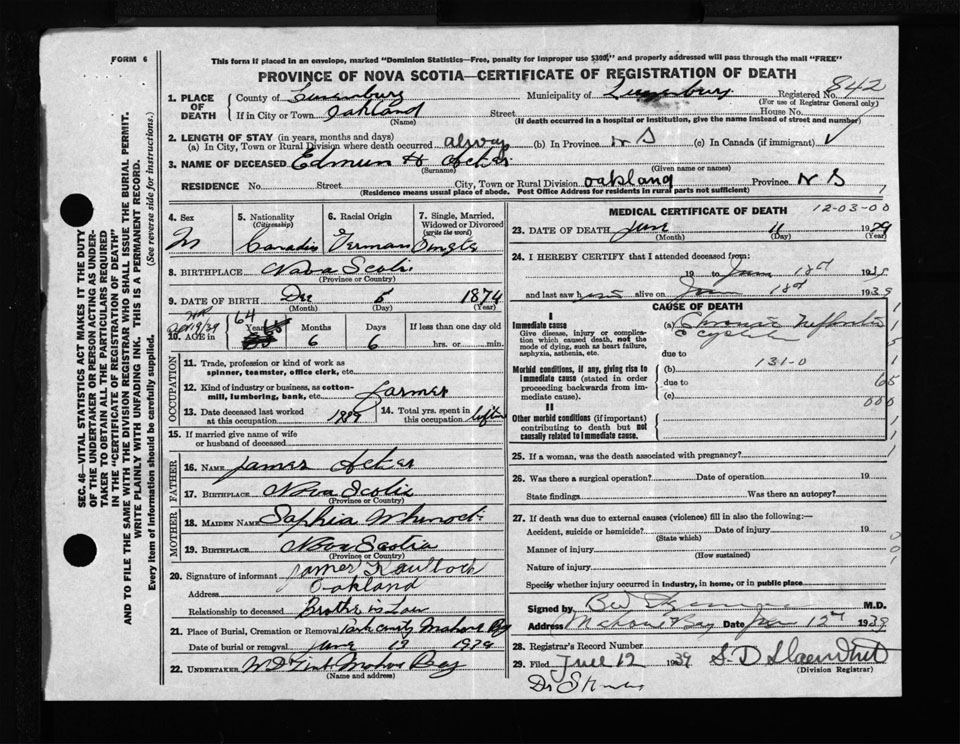 FORM 6
This form if placed in an envelope, marked "Dominion Statistics—Free, penalty for improper use $300," and properly addressed will pass through the mail "FREE"
PROVINCE OF NOVA SCOTIA—CERTIFICATE OF REGISTRATION OF DEATH
842
1. PLACE OF DEATH
County of Lunenburg Municipality of Lunenburg Registered No.
(For use of Registrar General only)
If in City or Town Oakland Street House No.
(Name) (If death occurred in a hospital or institution, give the name instead of street and number)
2. LENGTH OF STAY (in years, months and days)
(a) In City, Town or Rural Division where death occurred always (b) In Province N S (c) In Canada (if immigrant)
3. NAME OF DECEASED Edmun H Acker
(Surname) (Given name or names)
RESIDENCE No. Street City, Town or Rural Division Oakland Province N S
(Residence means usual place of abode. Post Office Address for residents in rural parts not sufficient)
4. Sex
M
5. Nationality
(Citizenship)
6. Racial Origin
German
7. Single, Married, Widowed or Divorced
(write the word)
Single
8. BIRTHPLACE Nova Scotia
(Province or Country)
9. DATE OF BIRTH Dec 5 1874
(Month) (Day) (Year)
10. AGE in 64 Years 6 Months 6 Days If less than one day old
hrs. or min.
OCCUPATION
11. Trade, profession or kind of work as spinner, teamster, office clerk, etc.
12. Kind of industry or business, as cotton-mill, lumbering, bank, etc. farmer
13. Date deceased last worked at this occupation 1939
14. Total yrs. spent in this occupation
15. If married give name of wife or husband of deceased
FATHER
16. NAME James Acker
17. BIRTHPLACE Nova Scotia
(Province or Country)
MOTHER
18. MAIDEN NAME Saphia
19. BIRTHPLACE Nova Scotia
(Province or Country)
20. Signature of informant James
Address Oakland
Relationship to deceased Brother in Law
21. Place of Burial, Cremation or Removal Mahone Bay
Date of burial or removal June 13 1939
22. UNDERTAKER Mahone Bay
(Name and address)
MEDICAL CERTIFICATE OF DEATH 12-03-00
23. DATE OF DEATH June 11 1939
(Month) (Day) (Year)
24. I HEREBY CERTIFY that I attended deceased from:
19 to 1939
and last saw h alive on 1939
CAUSE OF DEATH
I
Immediate cause
Give disease, injury or complication which caused death, not the mode of dying, such as heart failure, asphyxia, asthenia, etc.
(a) Chronic
due to
Morbid conditions, if any, giving rise to immediate cause (stated in order proceeding backwards from immediate cause).
(b) 131-0
due to
(c)
II
Other morbid conditions (if important) contributing to death but not causally related to immediate cause.
25. If a woman, was the death associated with pregnancy?
26. Was there a surgical operation? Date of operation 19
State findings Was there an autopsy?
27. If death was due to external causes (violence) fill in also the following:—
Accident, suicide or homicide? Date of injury 19
(State which)
Manner of injury
(How sustained)
Nature of injury
Specify whether injury occurred in industry, in home, or in public place
Signed by M.D.
Address Mahone Bay Date 12 1939
28. Registrar's Record Number
29. Filed 12 1939 S. D
(Division Registrar)
SEC. 46—VITAL STATISTICS ACT MAKES IT THE DUTY OF THE UNDERTAKER OR PERSON ACTING AS UNDERTAKER TO OBTAIN ALL THE PARTICULARS REQUIRED IN THE "CERTIFICATE OF REGISTRATION OF DEATH" AND TO FILE THE SAME WITH THE DIVISION REGISTRAR WHO SHALL ISSUE THE BURIAL PERMIT.
WRITE PLAINLY WITH UNFADING INK. THIS IS A PERMANENT RECORD.
Every item of information should be carefully supplied. (See reverse side for instructions.)